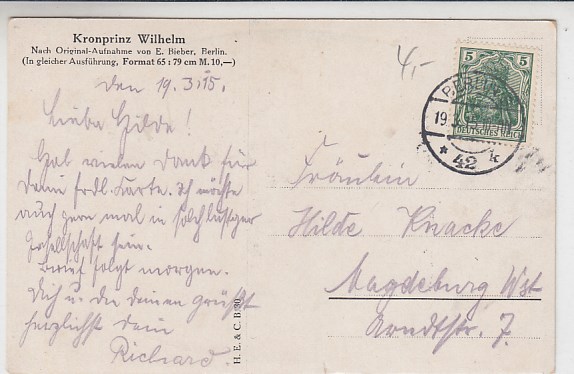 Kronprinz Wilhelm
Nach Original-Aufnahme von E. Bieber, Berlin.
(In gleicher Ausführung, Format 65 : 79 cm M. 10,—)
den 19. 3. 15.
Liebe Hilde!
Hab vielen Dank für
Deine frdl. Karte. Ich möchte
auch gern mal in solch lustiger
Gesellschaft sein.
Brief folgt morgen.
Dich u. die deinen grüßt
herzlichst dein
Richard.
H. E. & C. B. 30
4,-
5 5
DEUTSCHES REICH
BERLIN
19. 3. 15
* 42 k
Fräulein
Hilde Knacke
Magdeburg Wst
Arndtstr. 7.